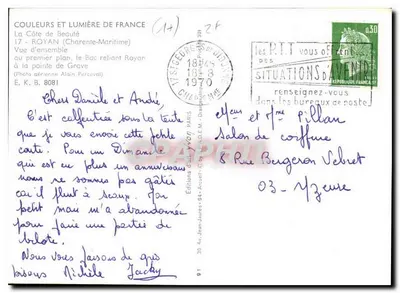 COULEURS ET LUMIÈRE DE FRANCE
La Côte de Beauté
17 - ROYAN (Charente-Maritime)
Vue d'ensemble
au premier plan, le Bac reliant Royan
à la pointe de Grave
(Photo aérienne Alain Perceval)
E. K. B. 8081
(17)
2F
18H
18-8
1970
les P.T.T vous offrent
DES
SITUATIONS D'AVENIR
renseignez-vous
dans les bureaux de poste
0,30
Chers Danièle et André,
C'est calfeutrée sous la tente
que je vous envoie cette petite
carte. Pour un Dimanche
qui est en plus un anniversaire
nous ne sommes pas gâtés
car il pleut à seaux. Mon
petit mari m'a abandonnée
pour faire une partie de
belote.
Nous vous faisons de gros
bisous Michèle Jacky
Mme et Mr Pillan
Salon de coiffure
8 Rue Bergeron Vebret
03 - Yzeure